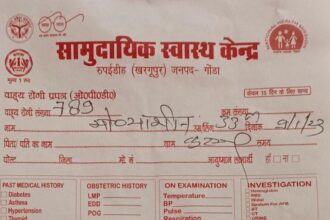 सामुदायिक स्वास्थ केन्द्र
रुपईडीह (खरगूपुर) जनपद- गोंडा
मूल्य 1 रु०
केवल 15 दिन के लिए मान्य
वाह्य रोगी प्रपत्र (ओ०पी०डी०)
वाह्य रोगी संख्या 789
क्रम संख्या
नाम मो० यासीन 53 दिनांक 9/1/23
पिता/पति का नाम समय
पोस्ट जिला मो० आयुष्मान लाभार्थी हाँ ना
PAST MEDICAL HISTORY
Diabetes
Asthma
Hypertension
Thyroid
OBSTETRIC HISTORY
LMP -
EDD -
POG -
ON EXAMINATION
Temperature
BP
Pulse
Respiratory
INVESTIGATION
Hemoglobin